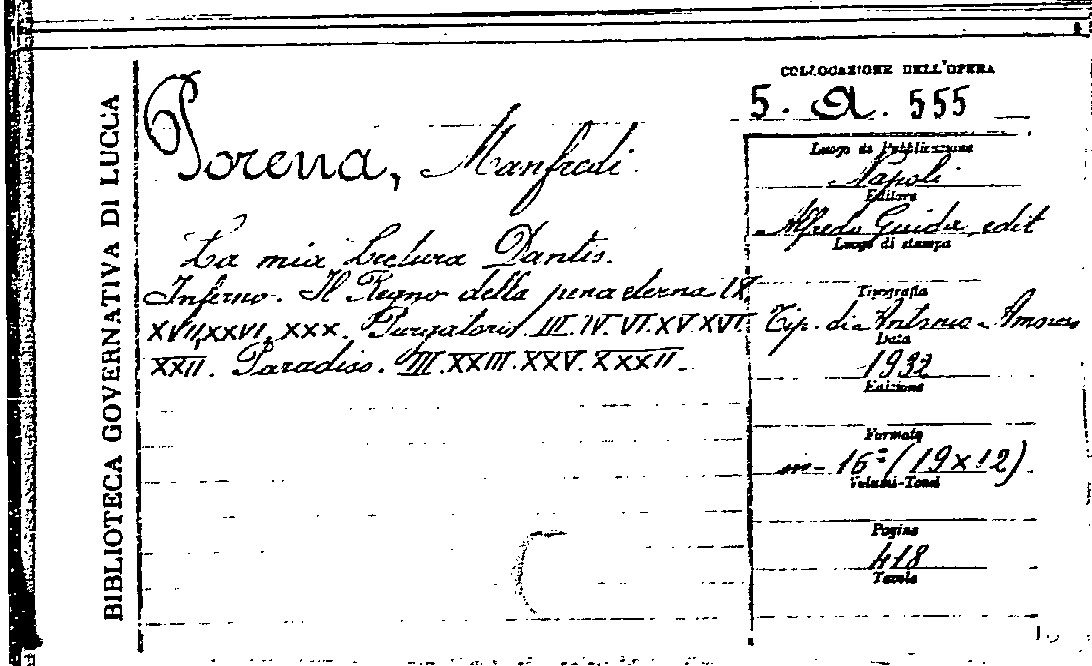 BIBLIOTECA GOVERNATIVA DI LUCCA
Porena, Manfredi.
La mia Lectura Dantis.
Inferno. Il Regno della pena eterna IX
XVII, XXVI, XXX. Purgatorio III. IV. VI. XV XVI.
XXII. Paradiso. III. XXIII. XXV. XXXII.
COLLOCAZIONE DELL'OPERA
5. A. 555
Luogo di Pubblicazione
Napoli
Editore
Alfredo Guida, edit
Luogo di stampa
Tipografia
Tip. di Antonio
Data
1932
Edizione
Formato
in-16° (19x12)
Volumi-Tomi
Pagine
418
Tavole